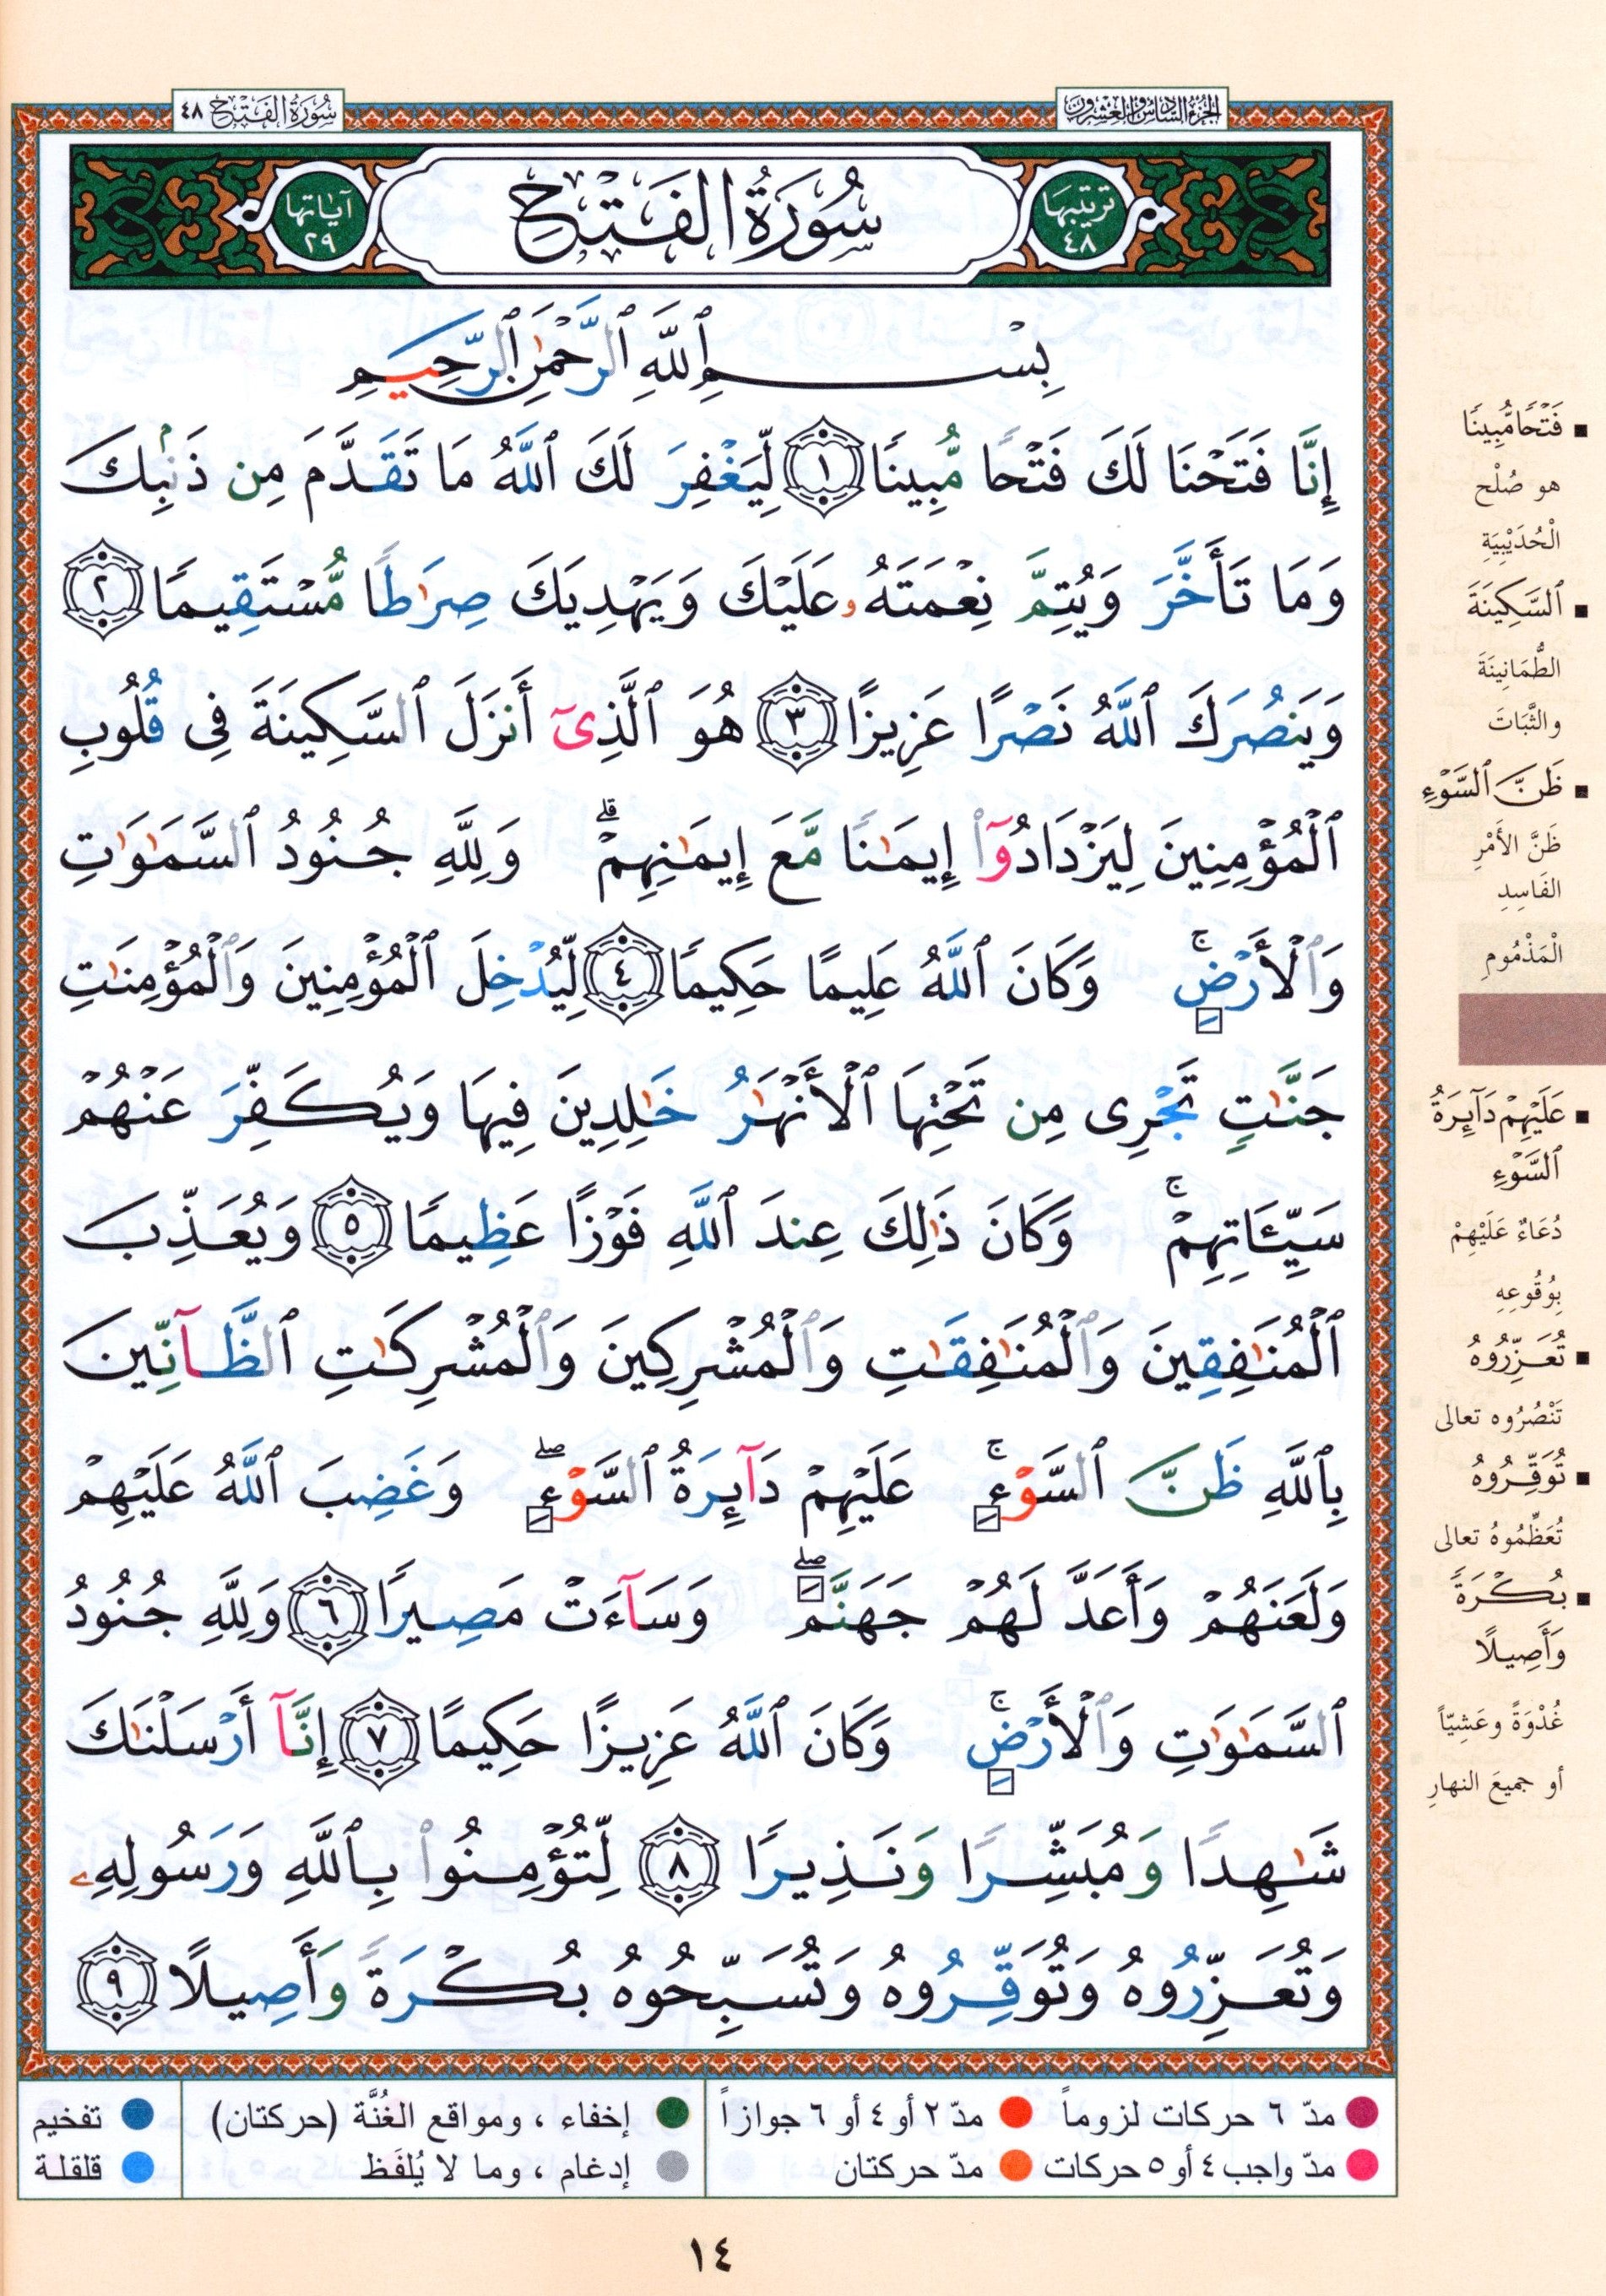 الجزء السادس والعشرون
سُورَةُ الفَتْحِ ٤٨
ترتيبها ٤٨
سُورَةُ الفَتْحِ
آياتها ٢٩
بِسْمِ ٱللَّهِ ٱلرَّحْمَٰنِ ٱلرَّحِيمِ
إِنَّا فَتَحْنَا لَكَ فَتْحًا مُّبِينًا ١ لِّيَغْفِرَ لَكَ ٱللَّهُ مَا تَقَدَّمَ مِن ذَنۢبِكَ
وَمَا تَأَخَّرَ وَيُتِمَّ نِعْمَتَهُۥ عَلَيْكَ وَيَهْدِيَكَ صِرَٰطًا مُّسْتَقِيمًا ٢
وَيَنصُرَكَ ٱللَّهُ نَصْرًا عَزِيزًا ٣ هُوَ ٱلَّذِىٓ أَنزَلَ ٱلسَّكِينَةَ فِى قُلُوبِ
ٱلْمُؤْمِنِينَ لِيَزْدَادُوٓا۟ إِيمَٰنًا مَّعَ إِيمَٰنِهِمْ ۗ وَلِلَّهِ جُنُودُ ٱلسَّمَٰوَٰتِ
وَٱلْأَرْضِ ۚ وَكَانَ ٱللَّهُ عَلِيمًا حَكِيمًا ٤ لِّيُدْخِلَ ٱلْمُؤْمِنِينَ وَٱلْمُؤْمِنَٰتِ
جَنَّٰتٍ تَجْرِى مِن تَحْتِهَا ٱلْأَنْهَٰرُ خَٰلِدِينَ فِيهَا وَيُكَفِّرَ عَنْهُمْ
سَيِّـَٔاتِهِمْ ۚ وَكَانَ ذَٰلِكَ عِندَ ٱللَّهِ فَوْزًا عَظِيمًا ٥ وَيُعَذِّبَ
ٱلْمُنَٰفِقِينَ وَٱلْمُنَٰفِقَٰتِ وَٱلْمُشْرِكِينَ وَٱلْمُشْرِكَٰتِ ٱلظَّآنِّينَ
بِٱللَّهِ ظَنَّ ٱلسَّوْءِ ۚ عَلَيْهِمْ دَآئِرَةُ ٱلسَّوْءِ ۖ وَغَضِبَ ٱللَّهُ عَلَيْهِمْ
وَلَعَنَهُمْ وَأَعَدَّ لَهُمْ جَهَنَّمَ ۖ وَسَآءَتْ مَصِيرًا ٦ وَلِلَّهِ جُنُودُ
ٱلسَّمَٰوَٰتِ وَٱلْأَرْضِ ۚ وَكَانَ ٱللَّهُ عَزِيزًا حَكِيمًا ٧ إِنَّآ أَرْسَلْنَٰكَ
شَٰهِدًا وَمُبَشِّرًا وَنَذِيرًا ٨ لِّتُؤْمِنُوا۟ بِٱللَّهِ وَرَسُولِهِۦ
وَتُعَزِّرُوهُ وَتُوَقِّرُوهُ وَتُسَبِّحُوهُ بُكْرَةً وَأَصِيلًا ٩
فَتْحًا مُّبِينًا
هو صُلْح
الْحُدَيْبِيَةِ
ٱلسَّكِينَةَ
الطُّمَانِينَةَ
والثَّبَاتَ
ظَنَّ ٱلسَّوْءِ
ظَنَّ الأَمْرِ
الفَاسِدِ
الْمَذْمُومِ
عَلَيْهِمْ دَآئِرَةُ
ٱلسَّوْءِ
دُعَاءٌ عَلَيْهِمْ
بِوُقُوعِهِ
تُعَزِّرُوهُ
تَنْصُرُوه تعالى
تُوَقِّرُوهُ
تُعَظِّمُوهُ تعالى
بُكْرَةً
وَأَصِيلًا
غُدْوَةً وعَشِيّاً
أو جميعَ النهارِ
مدّ ٦ حركات لزوماً مدّ ٢ أو ٤ أو ٦ جوازاً إخفاء ، ومواقع الغُنَّة (حركتان) تفخيم
مدّ واجب ٤ أو ٥ حركات مدّ حركتان إدغام ، وما لا يُلفَظ قلقلة
١٤